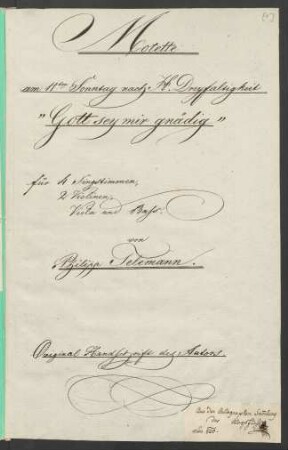 Motette
am 11ten Sonntag nach H. Dreyfaltigkeit
"Gott sey mir gnädig"
für 4 Singstimmen,
2 Violinen,
Viola und Bass.
von
Philipp Telemann.
Original Handschrift des Autors.
Aus der Autographen Sammlung
des